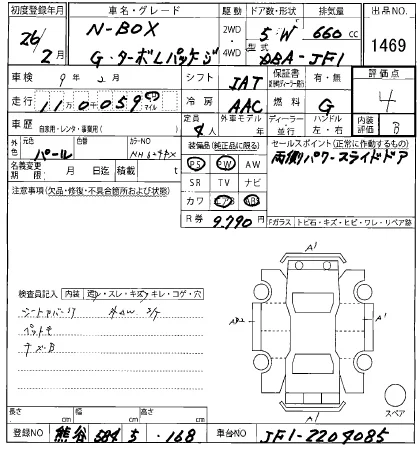 初度登録年月 車名・グレード 駆動 ドア数・形状 排気量 出品NO.
26/2月 N-BOX 2WD 5.W 660cc 1469
G・ターボLパッケージ 4WD 型式 DBA-JF1
車検 9年 2月 シフト IAT 保証書 有・無 評価点
走行 11万0千059 km マイル 冷房 AAC 燃料 G 4
車歴 自家用・レンタ・事業用( ) 定員 4人 外車モデル 年 ディーラー 並行 ハンドル 左・右 内装評価 B
外色 元色 パール 色番 カラーNO NH624PX 装備品(純正品に限る) セールスポイント(正常に作動するもの)
名義変更期限 月 日迄 積載 t PS PW AW 両側パワースライドドア
注意事項(欠品・修復・不具合箇所および状態) SR TV ナビ
カワ エアB ABS
R券 9.790 円 Fガラス トビ石・キズ・ヒビ・ワレ・リペア跡
検査員記入 内装 汚レ・スレ・キズ・キレ・コゲ・穴
A1
A1
A1
スペア
長さ cm 幅 cm 高さ cm
登録NO 熊谷 584 ち ・168 車台NO JF1-2204085